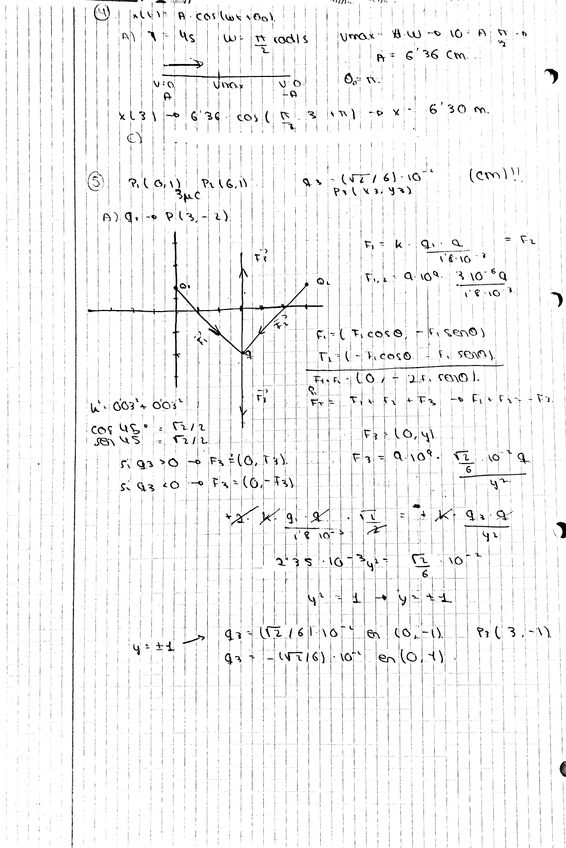 ④ x(t) = A·cos(ωt+θ0).
A) T = 4s   ω = π/2 rad/s   Vmax = A·ω → 10 = A·π/2 →
A = 6'36 cm.
V=0   Vmax   V=0   θ0 = π.
A   -A
x(3) → 6'36·cos(π/2·3+π) → x = 6'30 m.
C)
⑤ P1(0,1)   P2(6,1)   q3 = (√2/6)·10⁻²   (cm)!!
3μC   P3(x3,y3)
A) q1 → P(3,-2)
F1 = k·q1·q/1'8·10⁻³ = F2
F1,2 = 9·10⁹·3·10⁻⁶q/1'8·10⁻³
Q1   F3   Q2
F1   F2
q
F3
F1 = (F1cosθ, -F1senθ)
F2 = (-F1cosθ - F1 senθ).
F1+F2 = (0, -2F1 senθ).
h² = 0'03²+0'03²   FT = F1+F2+F3 → F1+F2 = -F3.
cos45° = √2/2
sen45 = √2/2   F3 = (0,y)
si q3>0 → F3 = (0,F3).   F3 = 9·10⁹·√2/6·10⁻²q/y²
si q3<0 → F3 = (0,-F3)
+2·k·q1·q/1'8·10⁻³·√2/2 = +k·q3·q/y²
2'35·10⁻³y² = √2/6·10⁻²
y² = 1 → y = ±1
y = ±1 → q3 = (√2/6)·10⁻² en (0,-1).   P3(3,-1)
q3 = -(√2/6)·10⁻² en (0,1).